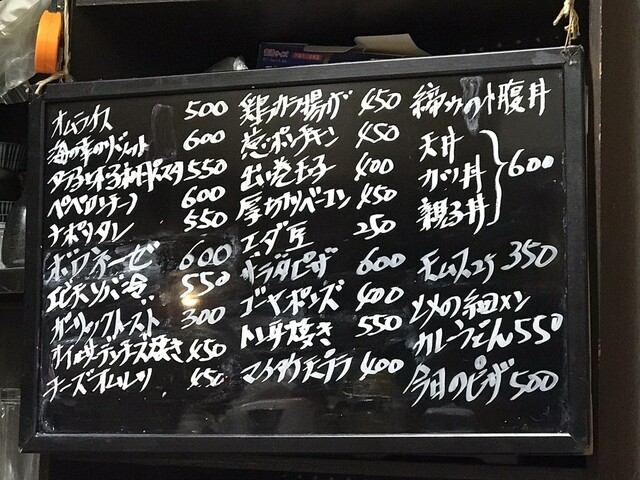 オムライス 500
海の幸のリゾット 600
タラコと子柱パスタ 550
ペペロンチーノ 600
ナポリタン 550
ボロネーゼ 600
エビ天ソバ冷 550
ガーリックトースト 300
オイルサーデンチーズ焼き 450
チーズオムレツ 450
鶏カラ揚げ 450
ポンチキン 450
出し巻玉子 400
厚切りベーコン 450
エダ豆 250
サラダピザ 600
ゴーヤポンズ 400
トン平焼き 550
マイタケ天プラ 400
締めの小腹丼
天丼
カツ丼
親子丼
600
350
〆の細メン
カレーうどん 550
今日のピザ 500